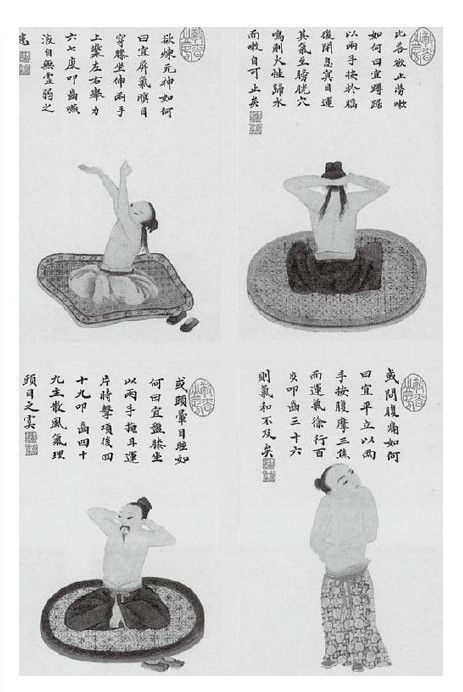 欲止勞嗽
如何曰宜蹲踞
以兩手按於腦
後閉息冥目運
其氣至膀胱穴
鳴則火性歸水
而嗽自可止矣
欲煉元神如何
曰宜屏氣瞑目
穿膝坐伸兩手
上擎左右舉力
六七度叩齒嚥
液自無虛弱之
或問腹痛如何
曰宜平立以兩
手按腹摩三焦
而運氣徐行百
叩齒三十六
則氣和不及矣
或頭暈目眩如
何曰宜盤膝坐
以兩手掩耳運
片時擊項後四
十九叩齒四十
九主散風氣理
頭目之